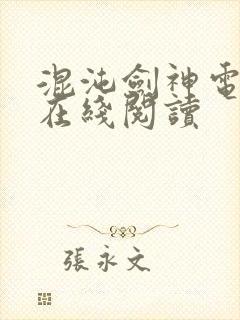 混沌劍神電
在綫閱讀
張永文